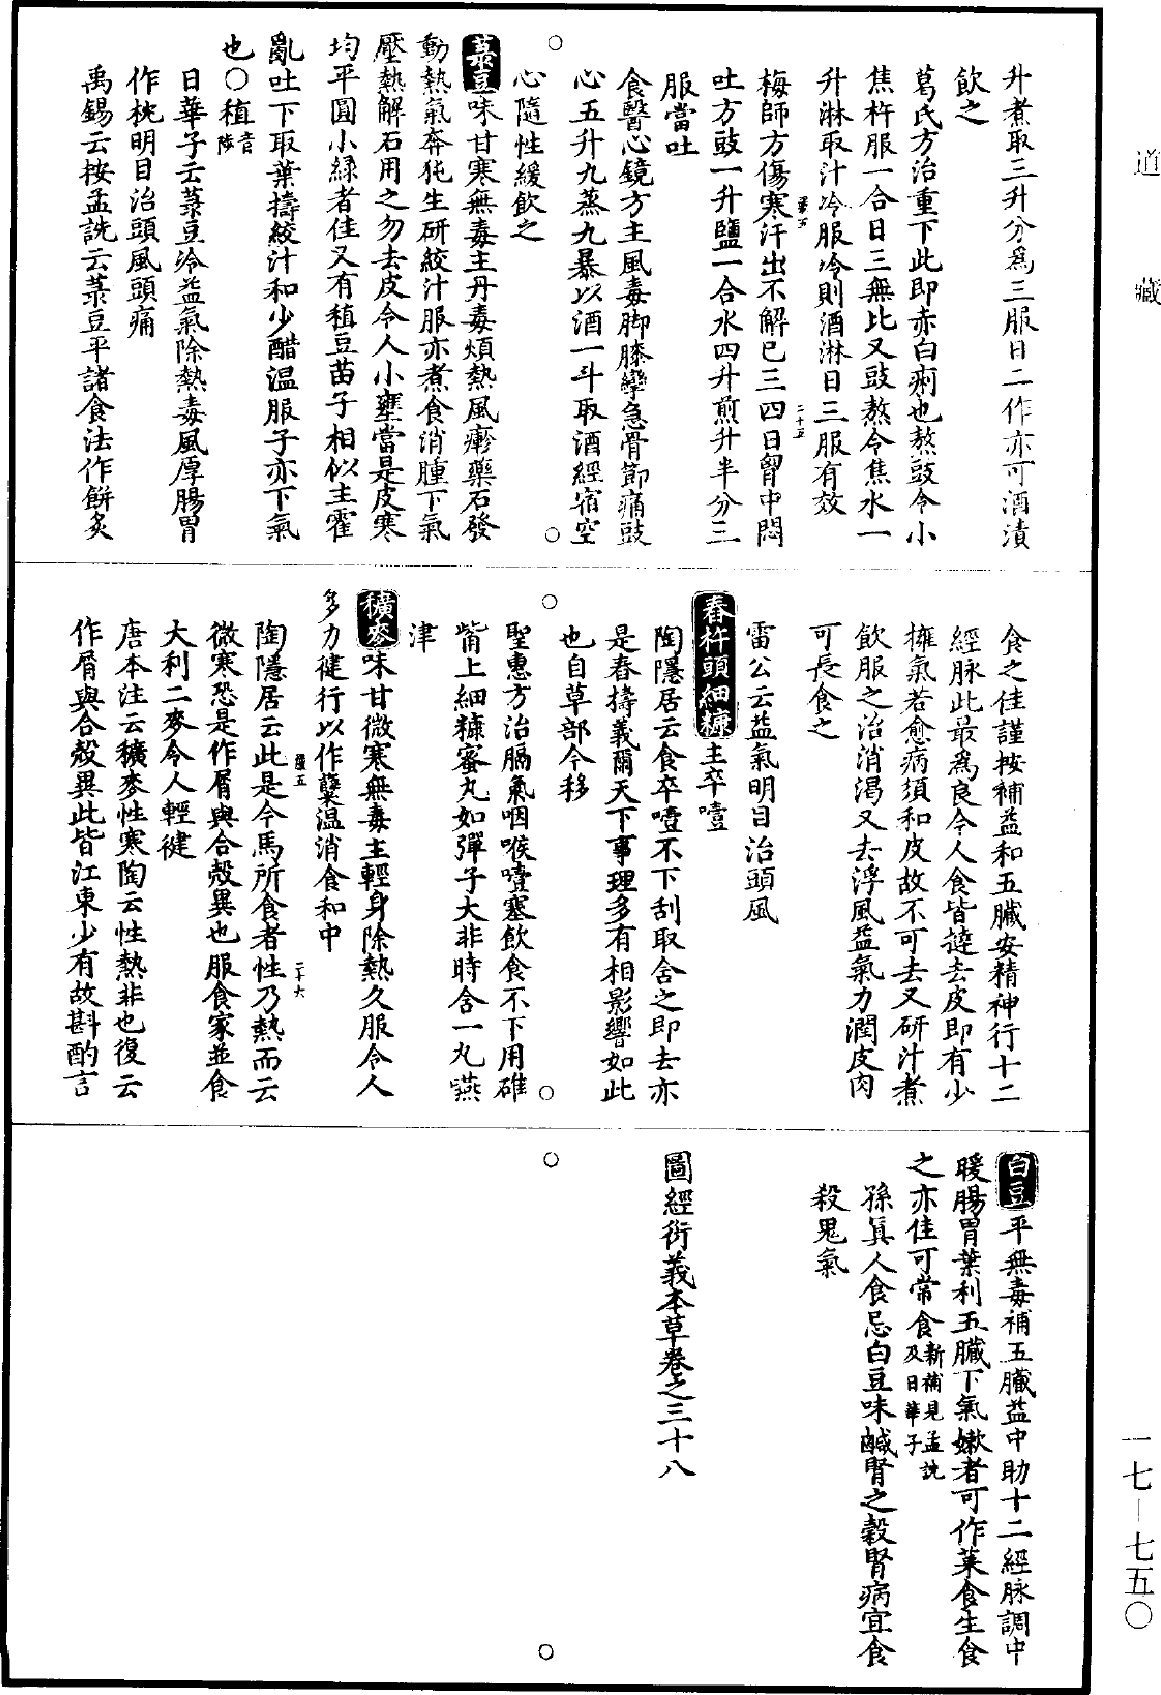 道藏
升煮取三升分爲三服日二作亦可酒漬
飲之
葛氏方治重下此即赤白痢也熬豉令小
焦杵服一合日三無比又豉熬令焦水一
升淋取汁冷服冷則酒淋日三服有效
梅師方傷寒汗出不解已三四日胷中悶
吐方豉一升鹽一合水四升煎升半分三
服當吐
食醫心鏡方主風毒脚膝攣急骨節痛豉
心五升九蒸九暴以酒一斗取酒經宿空
心隨性緩飲之
菉豆味甘寒無毒主丹毒煩熱風瘮藥石發
動熱氣奔㹠生研絞汁服亦煮食消腫下氣
壓熱解石用之勿去皮令人小壅當是皮寒
均平圓小緑者佳又有稙豆苗子相似主霍
亂吐下取葉擣絞汁和少醋温服子亦下氣
也○稙音陟
日華子云菉豆冷益氣除熱毒風厚腸胃
作枕明目治頭風頭痛
禹錫云按孟詵云菉豆平諸食法作餅炙
食之佳謹按補益和五臟安精神行十二
經脉此最爲良今人食皆撻去皮即有少
擁氣若愈病須和皮故不可去又研汁煮
飲服之治消渴又去浮風益氣力潤皮肉
可長食之
雷公云益氣明目治頭風
舂杵頭細糠主卒噎
陶隱居云食卒噎不下刮取含之即去亦
是舂擣義爾天下事理多有相影響如此
也自草部今移
聖惠方治膈氣咽喉噎塞飲食不下用碓
觜上細糠蜜丸如彈子大非時含一丸嚥
津
穬麥味甘微寒無毒主輕身除熱久服令人
多力健行以作糵温消食和中
陶隱居云此是今馬所食者性乃熱而云
微寒恐是作屑與合殼異也服食家並食
大利二麥令人輕健
唐本注云穬麥性寒陶云性熱非也復云
作屑與合殼異此皆江東少有故斟酌言
白豆平無毒補五臟益中助十二經脉調中
暖腸胃葉利五臟下氣嫩者可作菜食生食
之亦佳可常食新補見孟詵及日華子
孫眞人食忌白豆味鹹腎之穀腎病宜食
殺鬼氣
圖經衍義本草卷之三十八
一七—七五〇